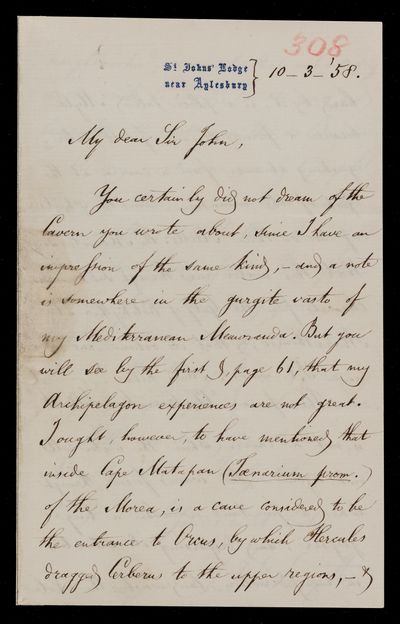 308
St Johns' Lodge
near Aylesbury } 10_3_'58.
My dear Sir John,
You certainly did not dream of the
Cavern you wrote about, since I have an
impression of the same kind, _ and a note
is somewhere in the gurgite vasto of
my Mediterranean Memoranda. But you
will see by the first §, page 61, that my
Archipelagon experiences are not great.
I ought, however, to have mentioned that
inside Cape Matapan (Tænarium prom.)
of the Morea, is a cave considered to be
the entrance to Orcus, by which Hercules
dragged Cerberus to the upper regions, _ &